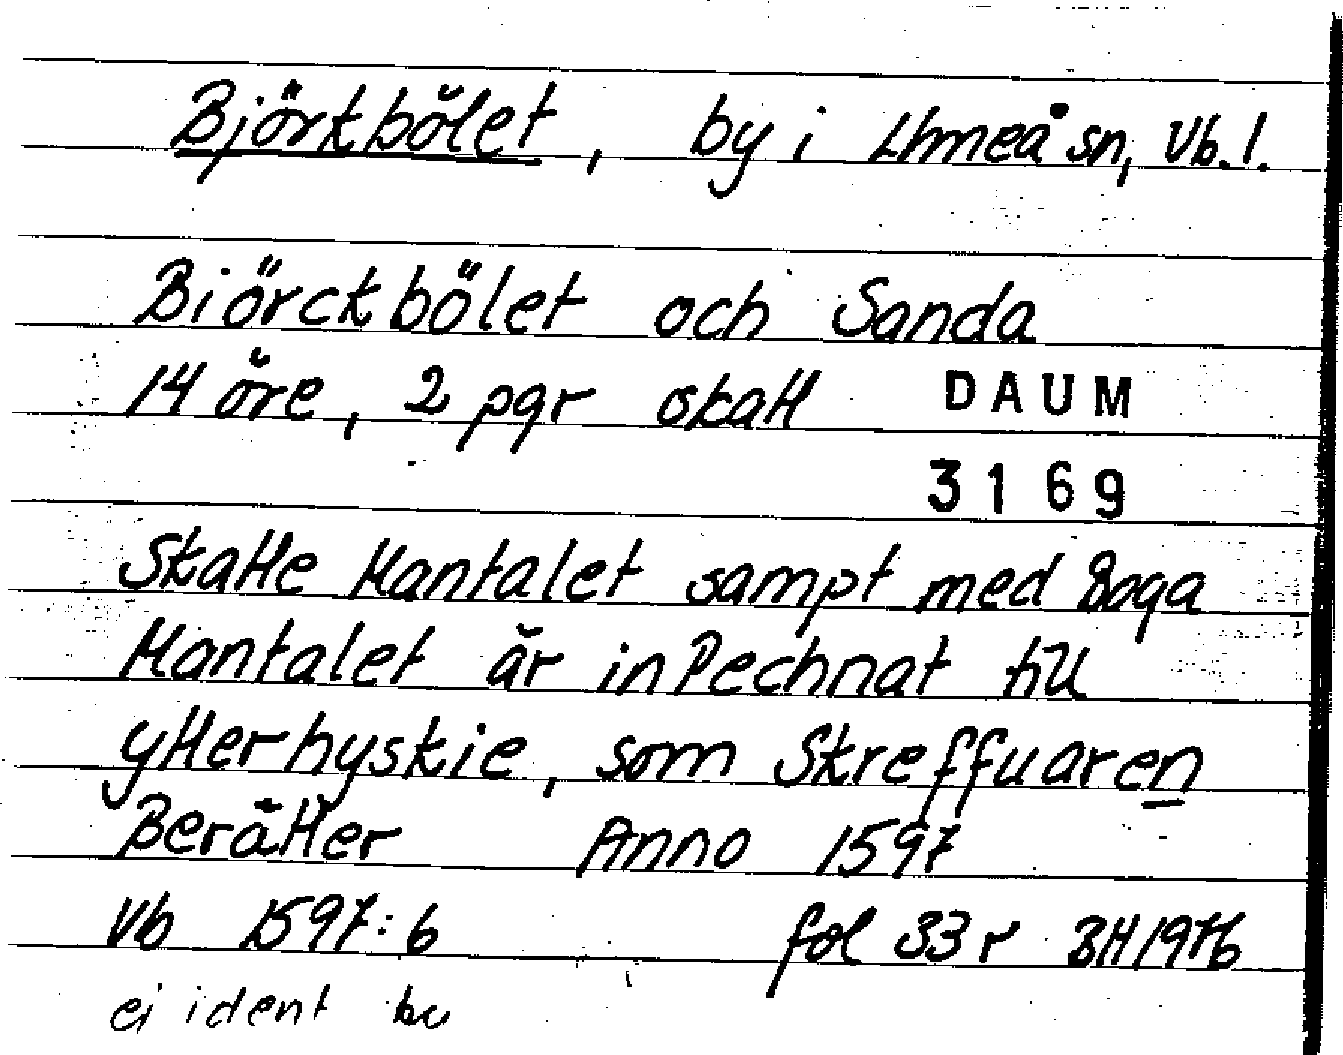 Björkbölet, by i Umeå sn, Vb. l.
Biörckbölet och Sanda
14 öre, 2 pgr skatt
DAUM
3169
Skatte Mantalet sampt med Boga
Mantalet är inTechnat till
ytterhyskie, som Skreffuaren
Berätter Anno 1597
Vb 1597:6 fol 33 r BH 1976
ej ident